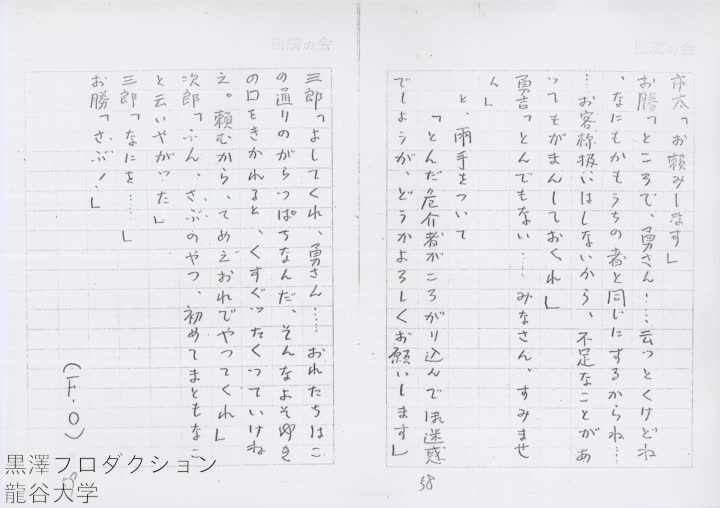 市太「お頼みします」
お勝「ところで、勇さん!…云っとくけどね
、なにもかもうちの者と同じにするからね…
…お客様扱いはしないから、不足なことがあ
ってもがまんしておくれ」
勇吉「とんでもない……みなさん、すみませ
ん」
と、両手をついて
「とんだ危介者がころがり込んで御迷惑
でしょうが、どうかよろしくお願いします」
58
三郎「よしてくれ、勇さん……おれたちはこ
の通りのがらっぱちなんだ、そんなよそゆき
の口をきかれると、くすぐったくっていけね
え。頼むから、てめえおれでやってくれ」
次郎「ふん、さぶのやつ、初めてまともなこ
と云いやがった」
三郎「なにを……」
お勝「さぶ!」
(F・O)
黒澤プロダクション
龍谷大学